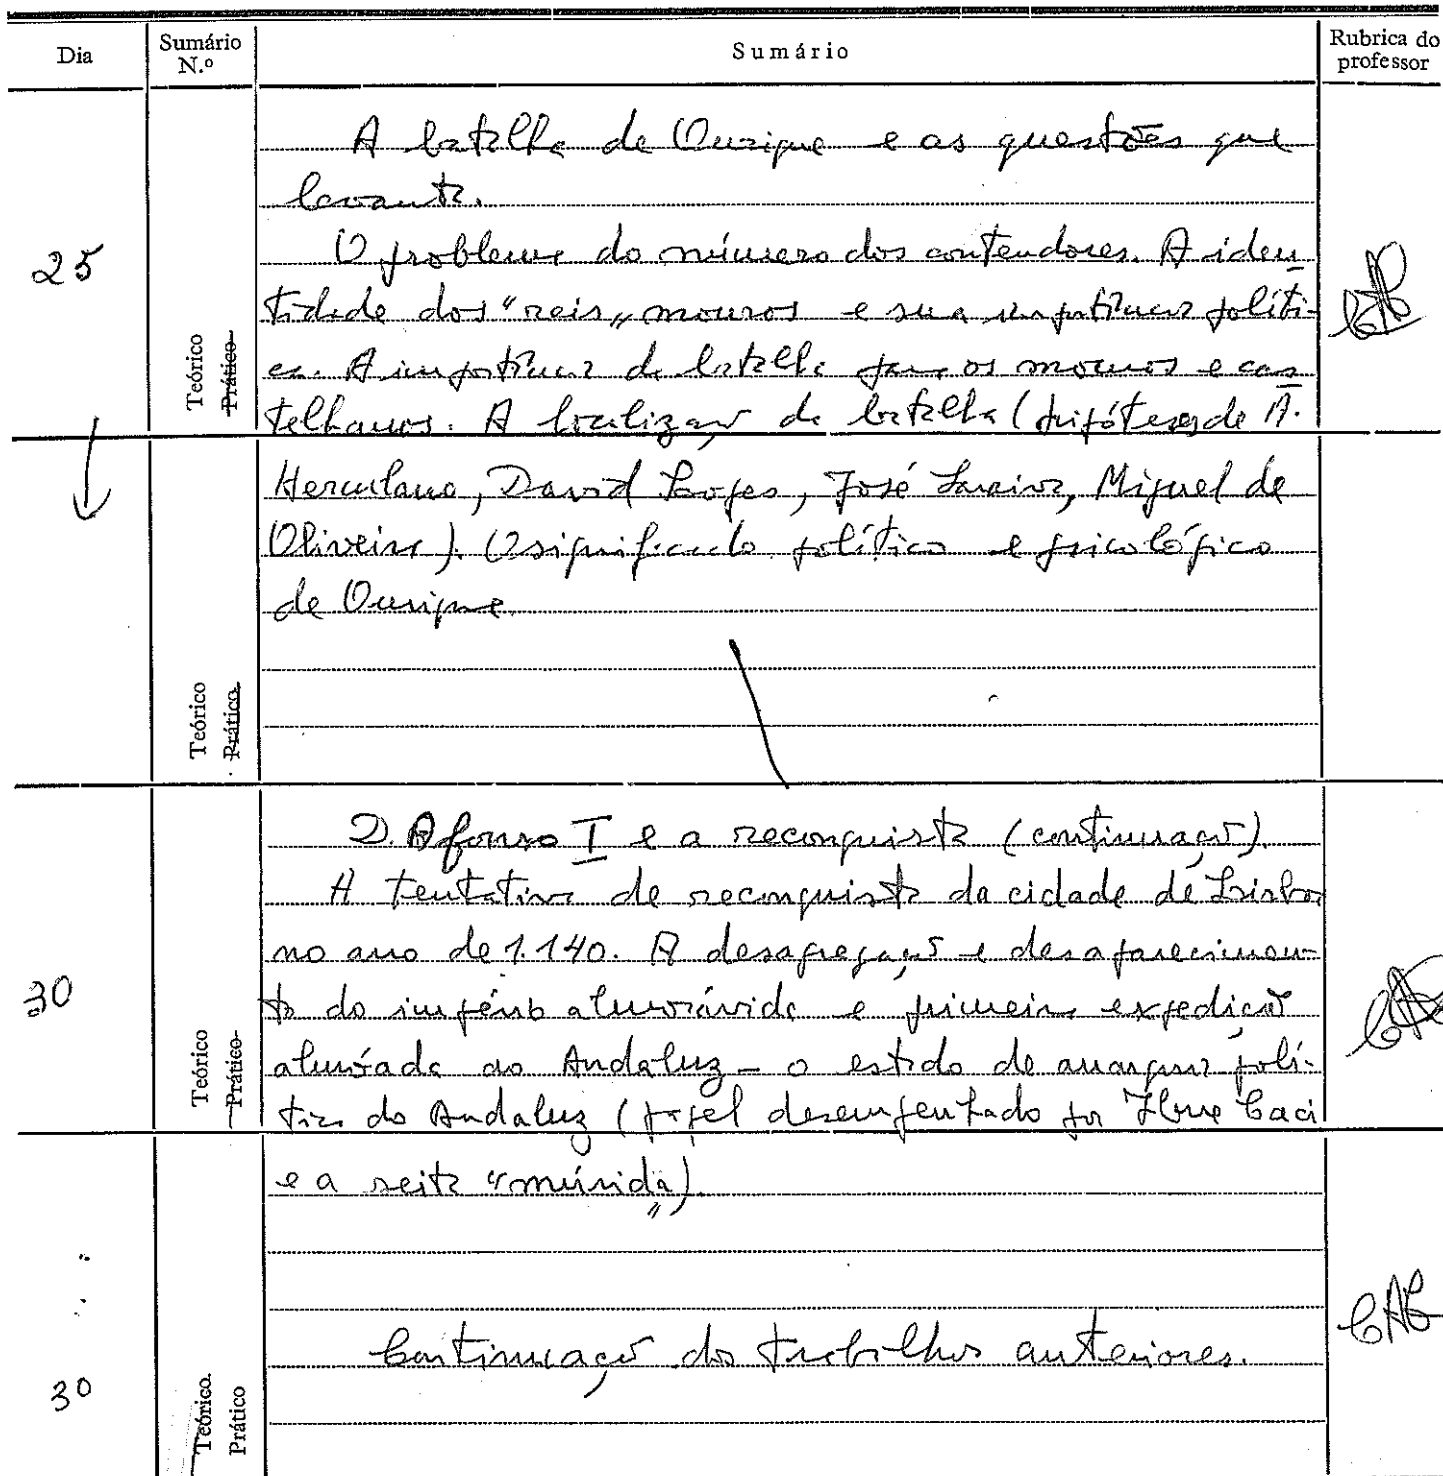 Dia
Sumário N.º
Sumário
Rubrica do professor
25
Teórico
Prático
A batalha de Ourique e as questões que
levanta.
O problema do número dos contendores. A iden
tidade dos "reis„ mouros e sua importância políti-
ca. A importância da batalha para os mouros e cas
telhanos. A localização da batalha (hipóteses de A.
Teórico
Prático
Herculano, David Lopes, José Saraiva, Miguel de
Oliveira). O significado político e psicológico
de Ourique.
30
Teórico
Prático
D. Afonso I e a reconquista (continuação).
A tentativa de reconquista da cidade de Lisboa
no ano de 1.140. A desagregação e desaparecimen-
to do império almorávida e primeira expedição
almóada ao Andaluz - o estado de anarquia polí-
tica do Andaluz (papel desempenhado por Ibne Caci
e a seita "múrida„).
30
Teórico
Prático
Continuação dos trabalhos anteriores.